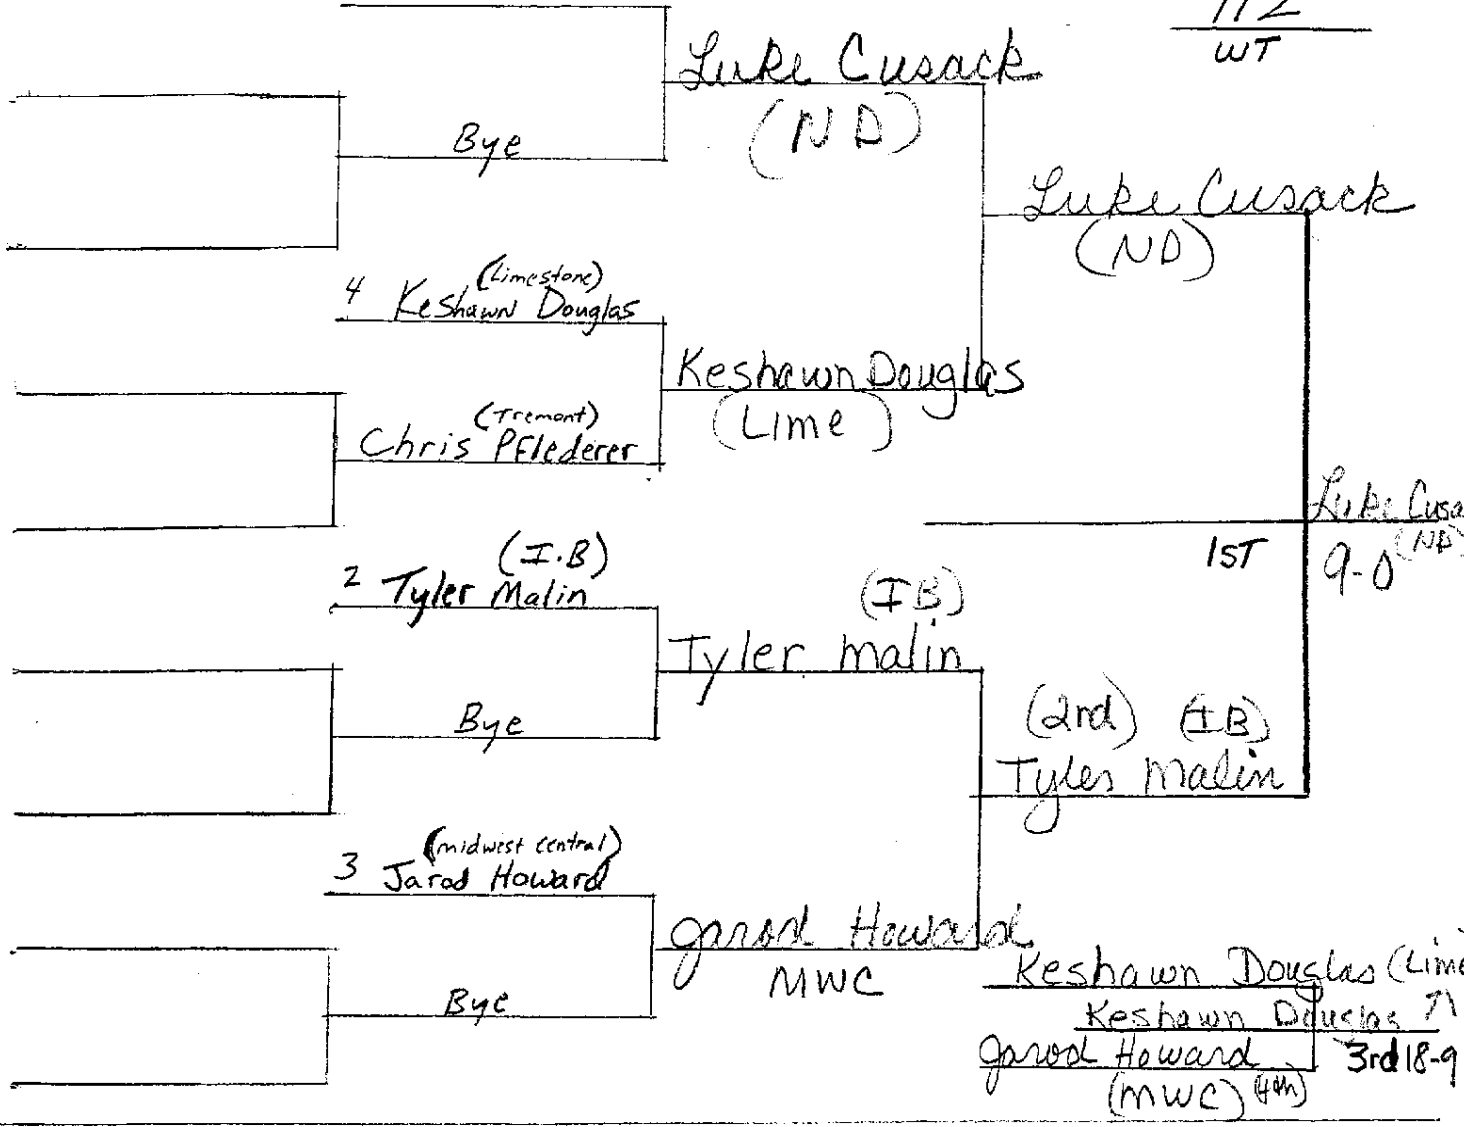 112
WT
Luke Cusack
(ND)
Bye
Luke Cusack
(ND)
(Limestone)
4 KeShawn Douglas
Keshawn Douglas
(Lime)
(Tremont)
Chris PFlederer
Luke Cusa
(ND)
1ST
9-0
(I.B)
2 Tyler Malin
(IB)
Tyler Malin
Bye
(2nd) (IB)
Tyler Malin
(midwest central)
3 Jarod Howard
Jarod Howard
MWC
Bye
Keshawn Douglas (Lime
Keshawn Douglas
3rd 18-9
Jarod Howard
(MWC) (4th)